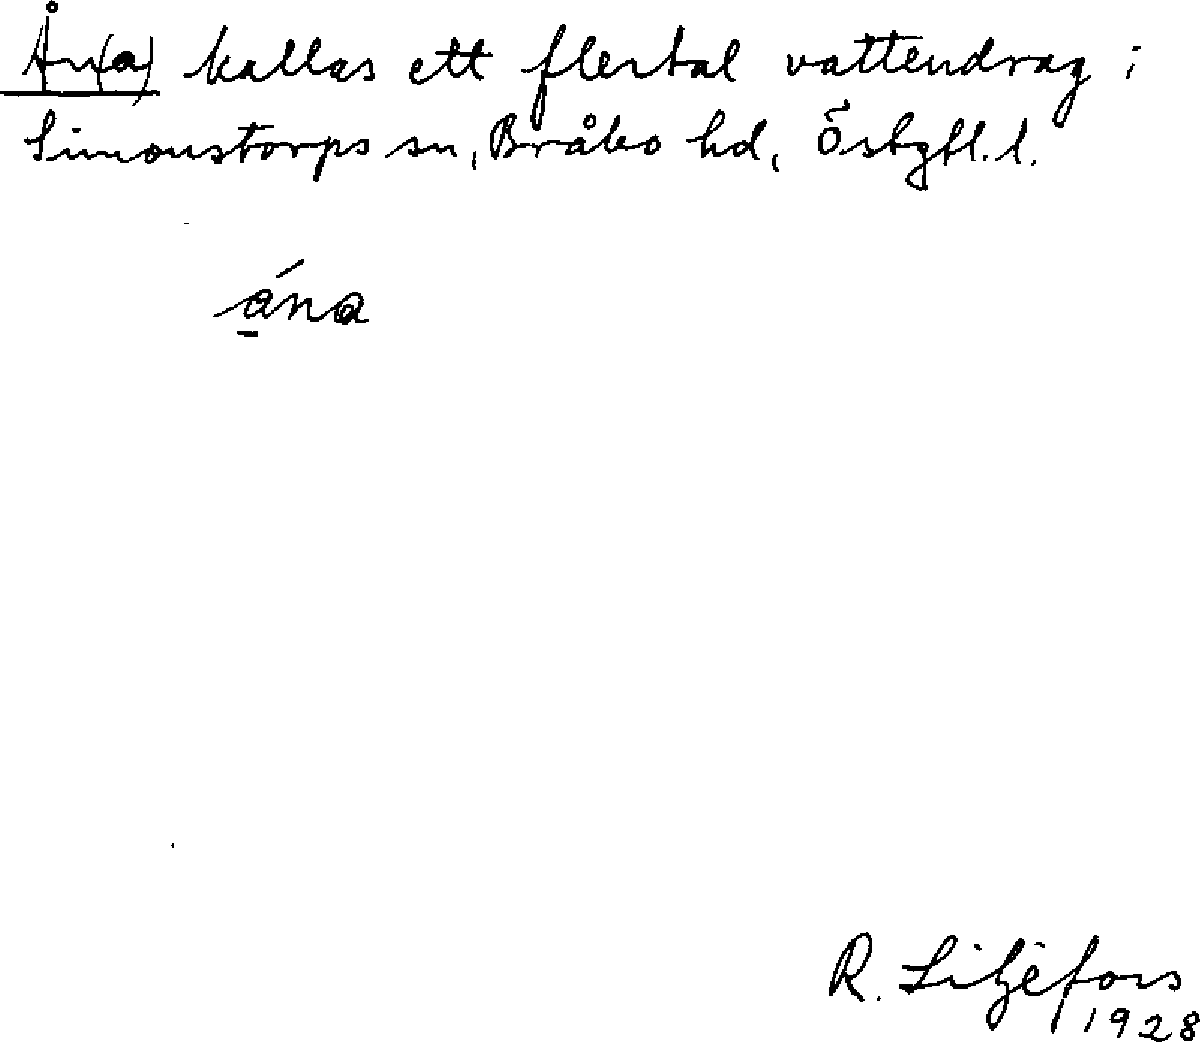 Ån(a) kallas ett flertal vattendrag i
Simonstorps sn, Bråbo hd, Östgtl. l.
ána
R. Liljefors
1928